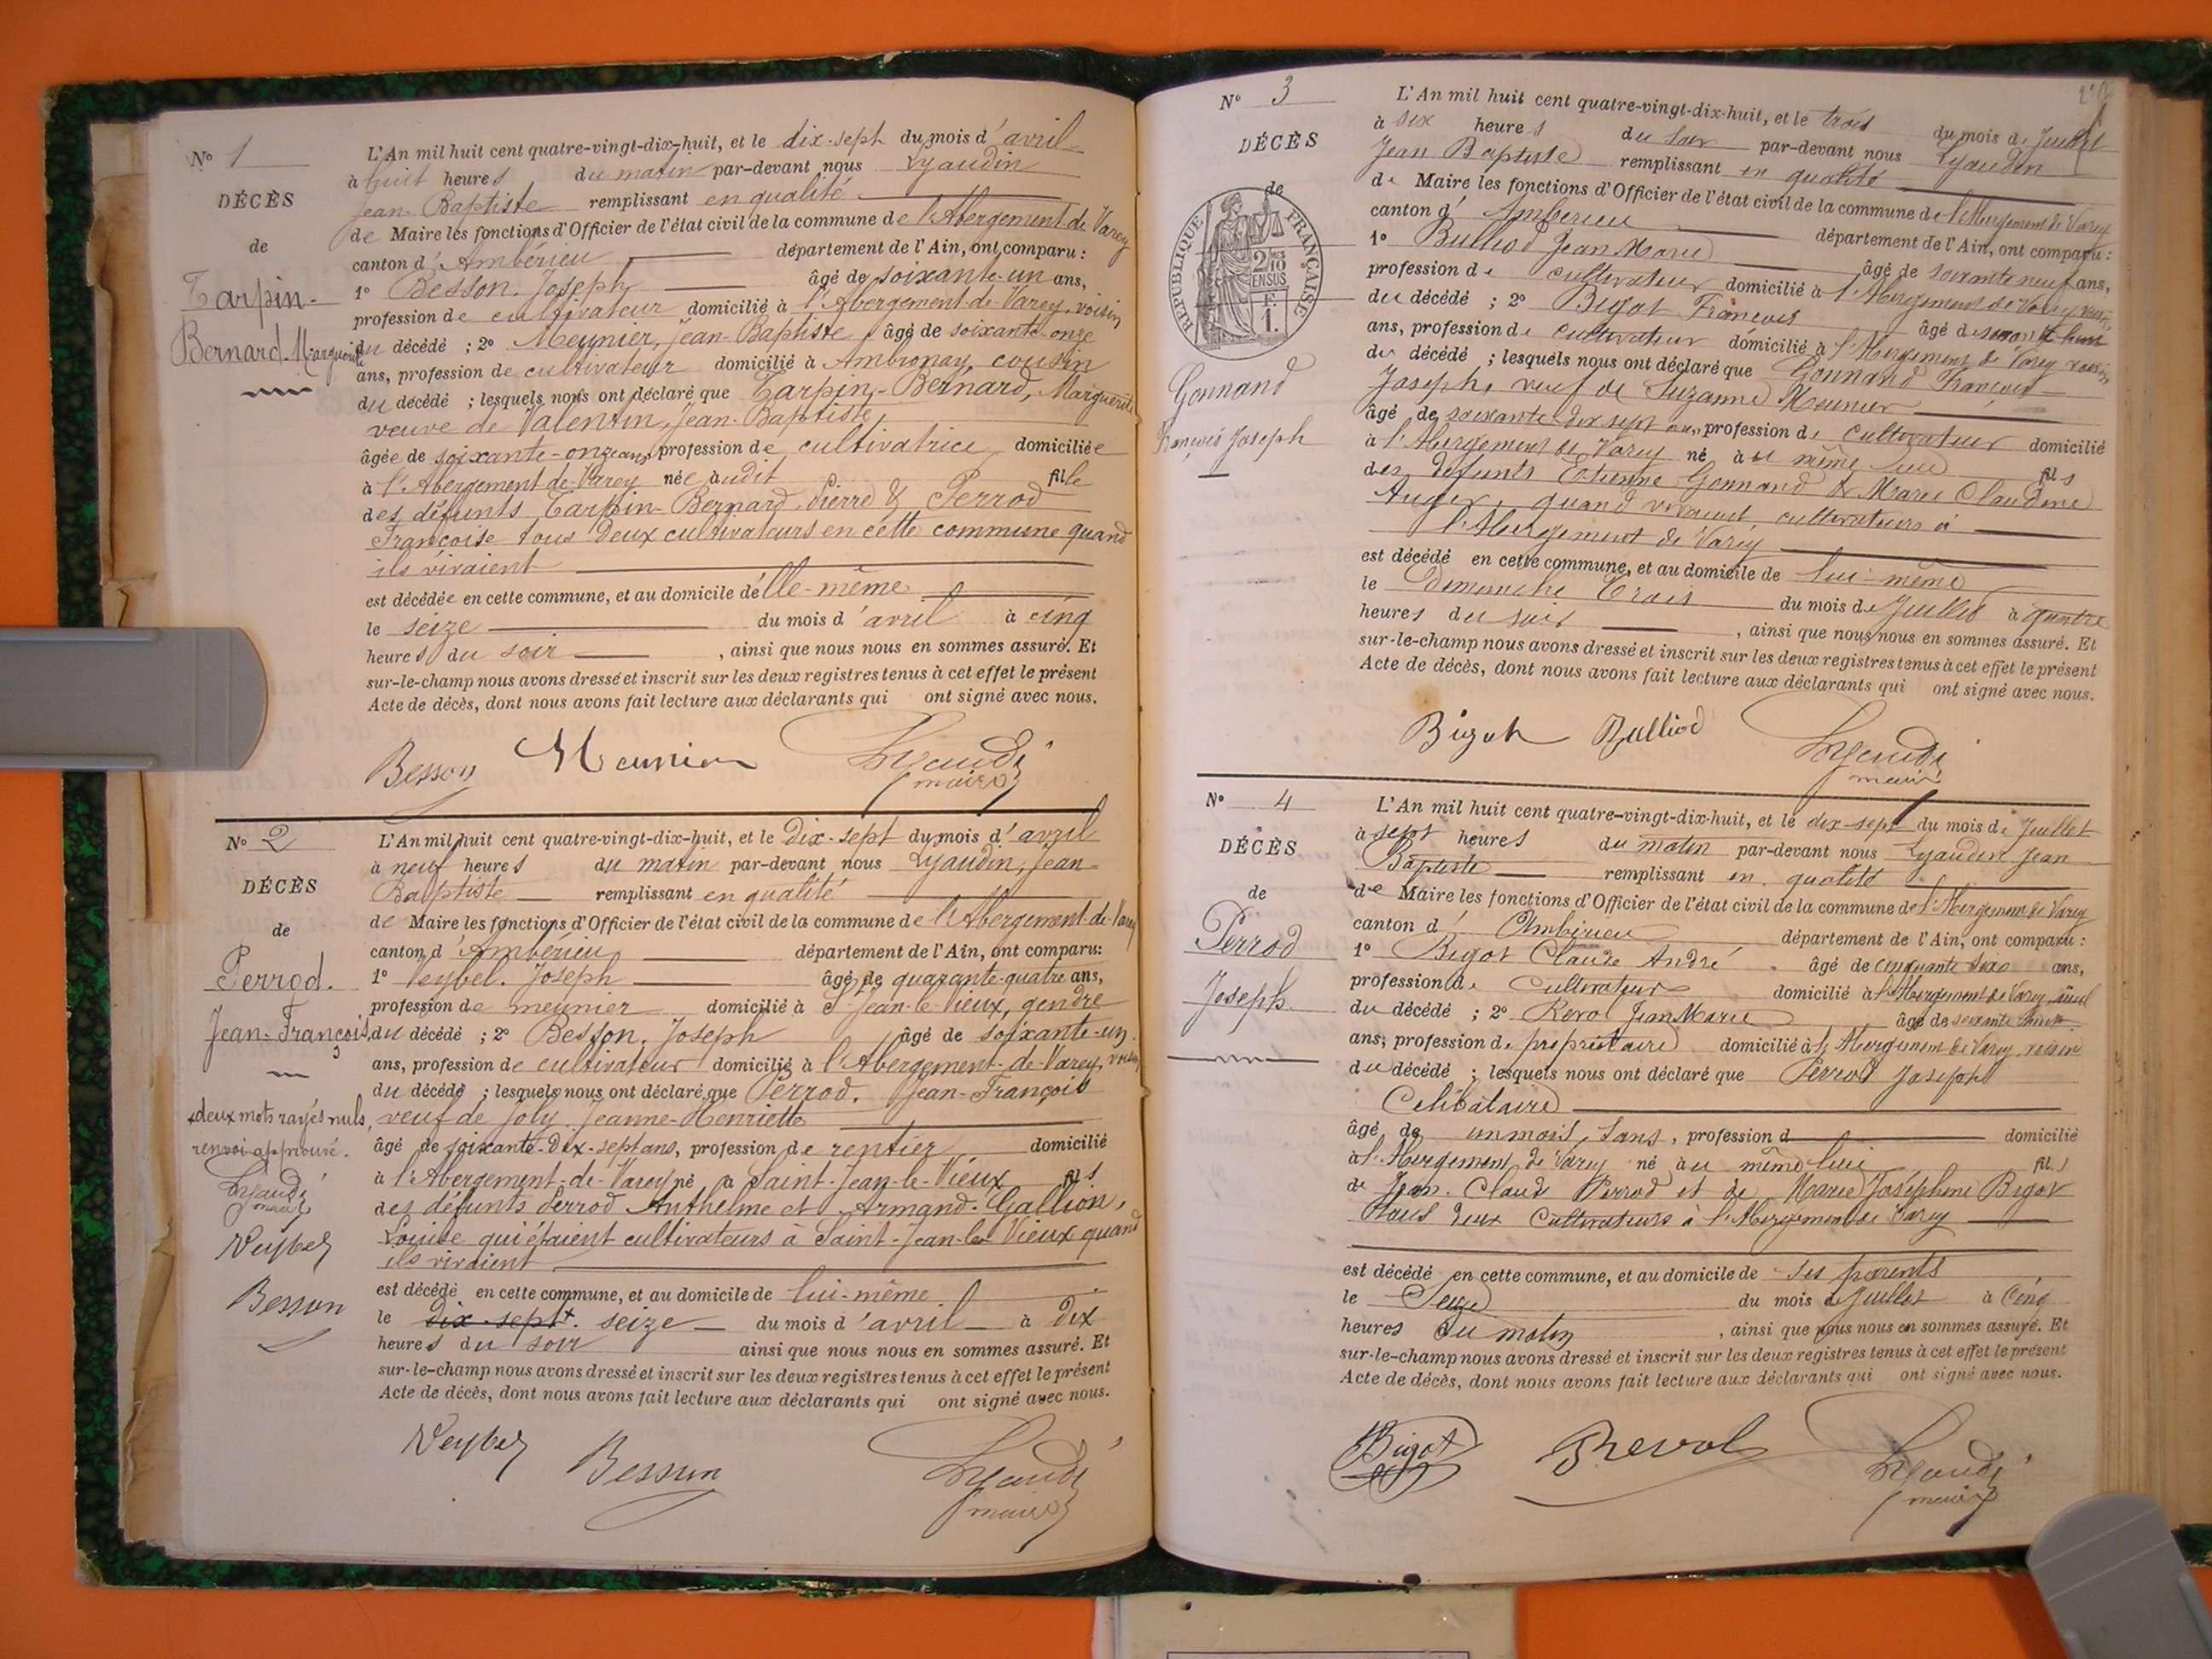 N° 1
DÉCÈS
de
Tarpin-
Bernard. Marguerite
L'An mil huit cent quatre-vingt-dix-huit, et le dix-sept du mois d'avril
à huit heures du matin par-devant nous Lyaudin
Jean-Baptiste remplissant en qualité
de Maire les fonctions d'Officier de l'état civil de la commune de l'Abergement-de-Varey
canton d'Ambérieu département de l'Ain, ont comparu :
1° Besson. Joseph âgé de soixante-un ans,
profession de cultivateur domicilié à l'Abergement-de-Varey, voisin
du décédé ; 2° Meunier, Jean-Baptiste, âgé de soixante-onze
ans, profession de cultivateur domicilié à Ambronay, cousin
du décédé ; lesquels nous ont déclaré que Tarpin-Bernard, Marguerite
veuve de Valentin, Jean-Baptiste,
âgée de soixante-onze ans, profession de cultivatrice domiciliée
à l'Abergement-de-Varey née audit fille
des défunts Tarpin-Bernard, Pierre & Perrod
Françoise tous deux cultivateurs en cette commune quand
ils vivaient
est décédée en cette commune, et au domicile d'elle-même
le seize du mois d'avril à cinq
heures du soir , ainsi que nous nous en sommes assuré. Et
sur-le-champ nous avons dressé et inscrit sur les deux registres tenus à cet effet le présent
Acte de décès, dont nous avons fait lecture aux déclarants qui ont signé avec nous.
Besson Meunier Lyaudi
maire
N° 2
DÉCÈS
de
Perrod.
Jean-François
deux mots rayés nuls,
renvoi approuvé.
Lyaudi
maire
Veybel
Besson
L'An mil huit cent quatre-vingt-dix-huit, et le dix-sept du mois d'avril
à neuf heures du matin par-devant nous Lyaudin, Jean-
Baptiste remplissant en qualité
de Maire les fonctions d'Officier de l'état civil de la commune de l'Abergement-de-Varey
canton d'Ambérieu département de l'Ain, ont comparu:
1° Veybel. Joseph âgé de quarante-quatre ans,
profession de meunier domicilié à St Jean-le-Vieux, gendre
du décédé ; 2° Besson, Joseph âgé de soixante-un
ans, profession de cultivateur domicilié à l'Abergement-de-Varey, voisin
du décédé ; lesquels nous ont déclaré que Perrod. Jean-François
veuf de Joly Jeanne-Henriette
âgé de soixante-dix-sept ans, profession de rentier domicilié
à l'Abergement-de-Varey né à Saint-Jean-le-Vieux fils
des défunts Perrod Anthelme et Armand-Gallion,
Louise qui étaient cultivateurs à Saint-Jean-le-Vieux quand
ils vivaient
est décédé en cette commune, et au domicile de lui-même
le dix-sept. seize du mois d'avril à dix
heures du soir ainsi que nous nous en sommes assuré. Et
sur-le-champ nous avons dressé et inscrit sur les deux registres tenus à cet effet le présent
Acte de décès, dont nous avons fait lecture aux déclarants qui ont signé avec nous.
Veybel Besson Lyaudi
maire
N° 3
DÉCÈS
de
RÉPUBLIQUE FRANÇAISE
2/10 EN SUS
F.
1.
Gonnand
François Joseph
L'An mil huit cent quatre-vingt-dix-huit, et le trois du mois de Juillet
à six heures du soir par-devant nous Lyaudin
Jean Baptiste remplissant en qualité
de Maire les fonctions d'Officier de l'état civil de la commune de l'Abergement de Varey
canton d'Ambérieu département de l'Ain, ont comparu :
1° Bulliod Jean Marie âgé de soixante neuf ans,
profession de cultivateur domicilié à l'Abergement de Varey voisin
du décédé ; 2° Bigot François âgé de
ans, profession de cultivateur domicilié à l'Abergement de Varey voisin
du décédé ; lesquels nous ont déclaré que Gonnand François
Joseph, veuf de Suzanne Meunier
âgé de soixante dix sept ans, profession de cultivateur domicilié
à l'Abergement de Varey né au même lieu fils
des défunts Etienne Gonnand & Marie Claudine
Auger, quand vivaient cultivateurs à
l'Abergement de Varey
est décédé en cette commune, et au domicile de lui-même
le Dimanche Trois du mois de Juillet à quatre
heures du soir , ainsi que nous nous en sommes assuré. Et
sur-le-champ nous avons dressé et inscrit sur les deux registres tenus à cet effet le présent
Acte de décès, dont nous avons fait lecture aux déclarants qui ont signé avec nous.
Bigot Bulliod Lyaudi
maire
N° 4
DÉCÈS
de
Perrod
Joseph
L'An mil huit cent quatre-vingt-dix-huit, et le dix-sept du mois de Juillet
à sept heures du matin par-devant nous Lyaudin Jean
Baptiste remplissant en qualité
de Maire les fonctions d'Officier de l'état civil de la commune de l'Abergement de Varey
canton d'Ambérieu département de l'Ain, ont comparu :
1° Bigot Claude André âgé de cinquante ans,
profession de cultivateur domicilié à l'Abergement de Varey aïeul
du décédé ; 2° Jean Marie âgé de soixante
ans, profession de propriétaire domicilié à l'Abergement de Varey voisin
du décédé ; lesquels nous ont déclaré que Perrod Joseph
Célibataire
âgé de un mois, sans, profession d domicilié
à l'Abergement de Varey né au même lieu fils
de Jean-Claude Perrod et de Marie Joséphine Bigot
tous deux cultivateurs à l'Abergement de Varey
est décédé en cette commune, et au domicile de ses parents
le Seize du mois de Juillet à cinq
heures du matin , ainsi que nous nous en sommes assuré. Et
sur-le-champ nous avons dressé et inscrit sur les deux registres tenus à cet effet le présent
Acte de décès, dont nous avons fait lecture aux déclarants qui ont signé avec nous.
Bigot Revol Lyaudi
maire